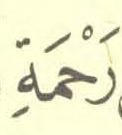 رَحْمَةِ